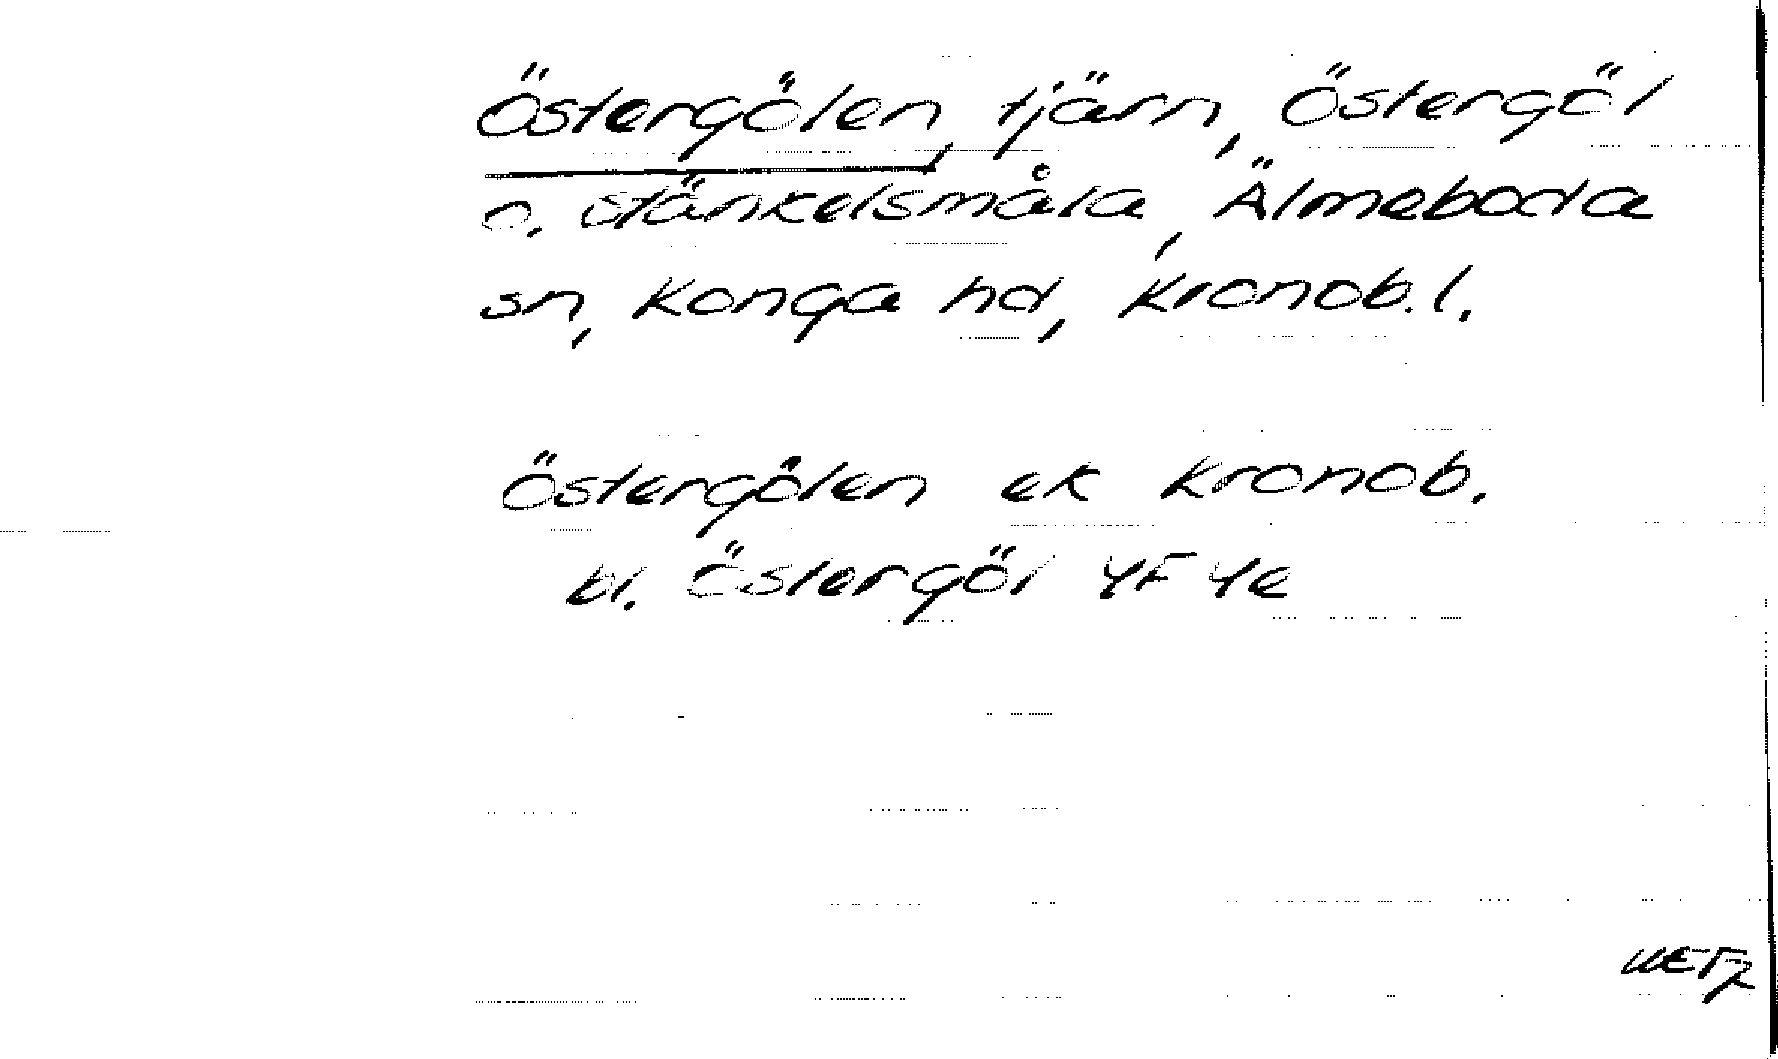 Östergölen, tjärn, Östergöl
o. Stänkelsmåla, Älmeboda
sn, Konga hd, Kronob. l.
Östergölen ek Kronob.
bl. Östergöl 4F 4e